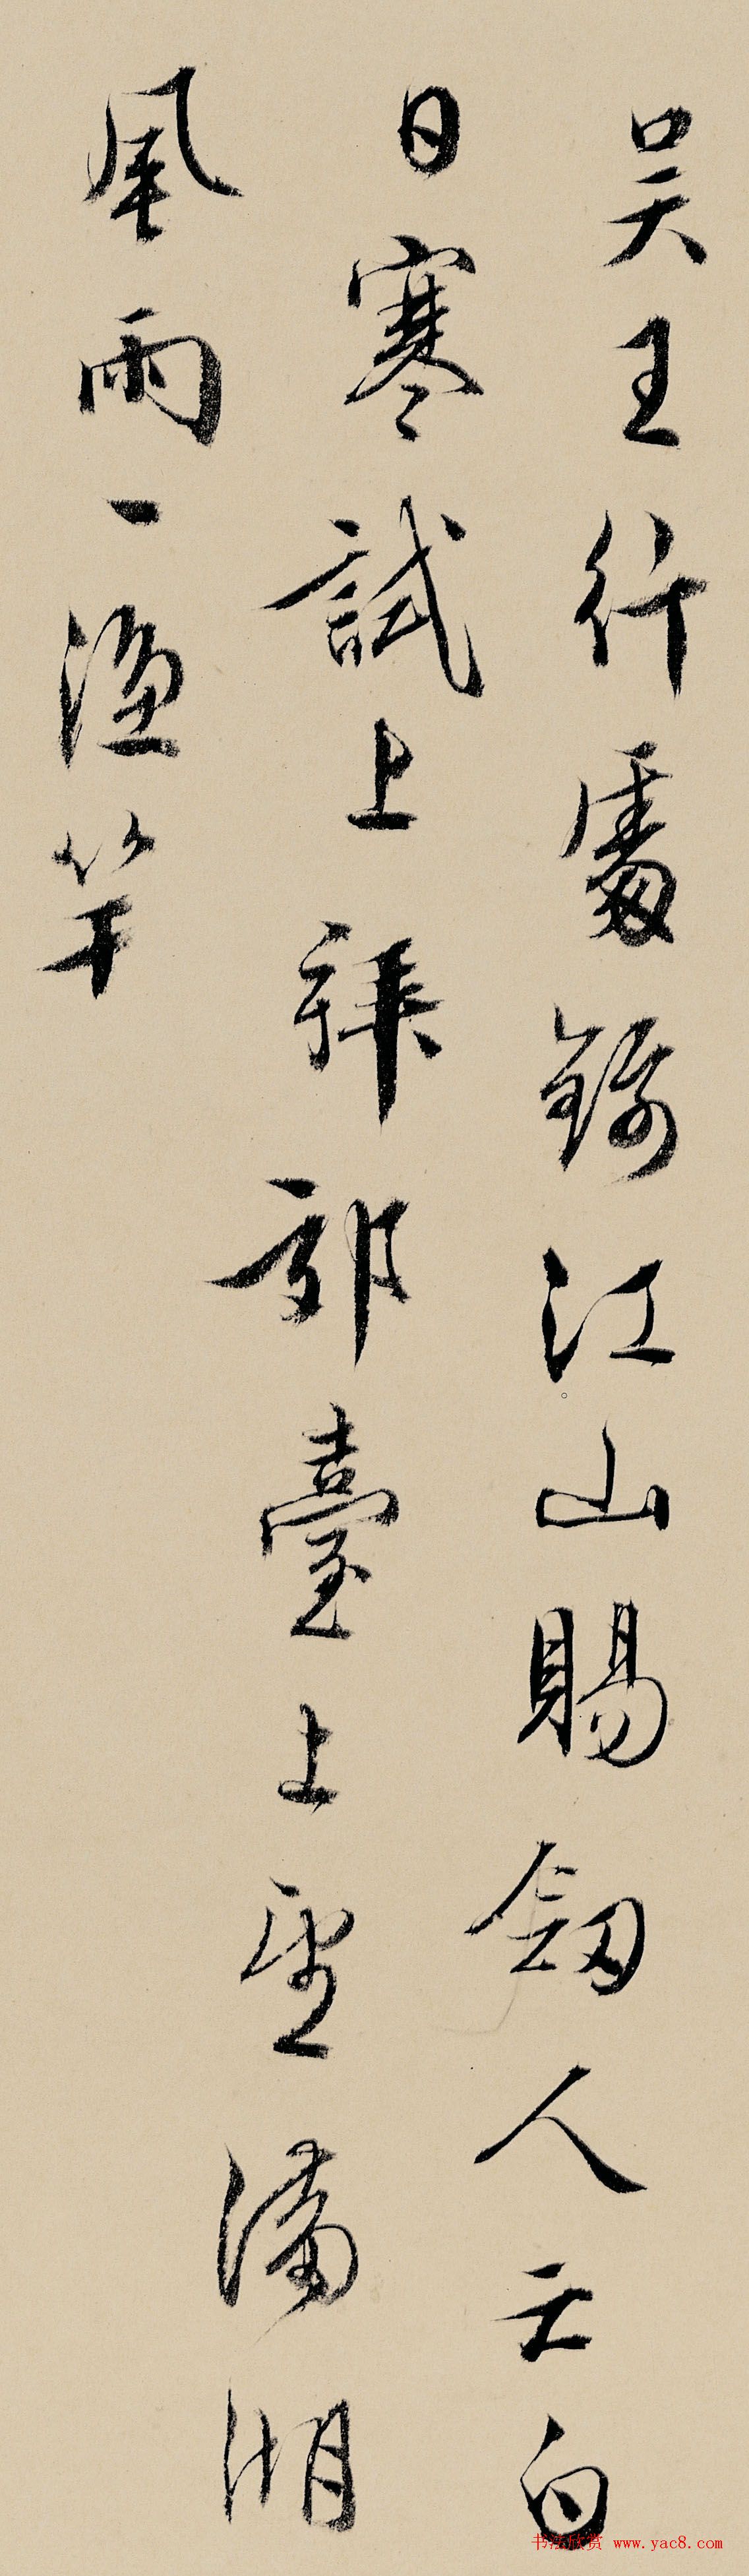 吴王行處錦江山賜劔人亡白
日寒試上拜郊臺上望滿湖
風雨一漁竿
书法欣赏 www.yac8.com